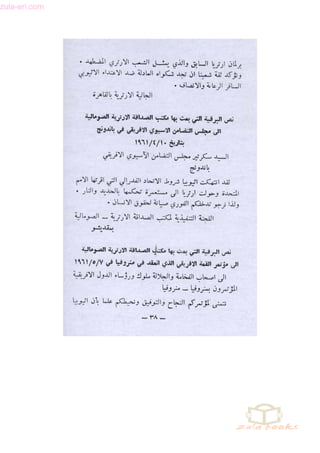 zula-eri.com
برلمان ارتريا السابق والذي يمثــل الشعب الارتري المضطهد •
ونؤكد ثقة شعبنا ان تجد شكواه العادلة ضد الاعتداء الاثيوبي
السافر الرعاية والانصاف •
الجالية الارترية بالقاهرة
نص البرقية التي بعث بها مكتب الصداقة الارترية الصومالية
الى مجلس التضامن الاسيوي الافريقي في باندونج
بتاريخ ١٩٦١/٤/١٠
السيد سكرتير مجلس التضامن الآسيوي الافريقي
باندونج
لقد انتهكت اثيوبيا شروط الاتحاد الفدرالي التي اقرتها الامم
المتحدة وحولت ارتريا الى مستعمرة تحكمها بالحديد والنار •
ولذا نرجو تدخلكم الفوري صيانة لحقوق الانسان •
اللجنة التنفيذية لمكتب الصداقة الارترية ــ الصومالية
بمقديشو
نص البرقية التي بعث بها مكتب الصداقة الارترية الصومالية
الى مؤتمر القمة الافريقي الذي انعقد في منروفيا في ١٩٦١/٥/٧
الى اصحاب الفخامة والجلالة ملوك ورؤساء الدول الافريقية
المؤتمرون بمنروفيا ــ منروفيا
نتمنى لمؤتمركم النجاح والتوفيق ونحيطكم علما بأن اثيوبيا
— ٣٨ —
zula books